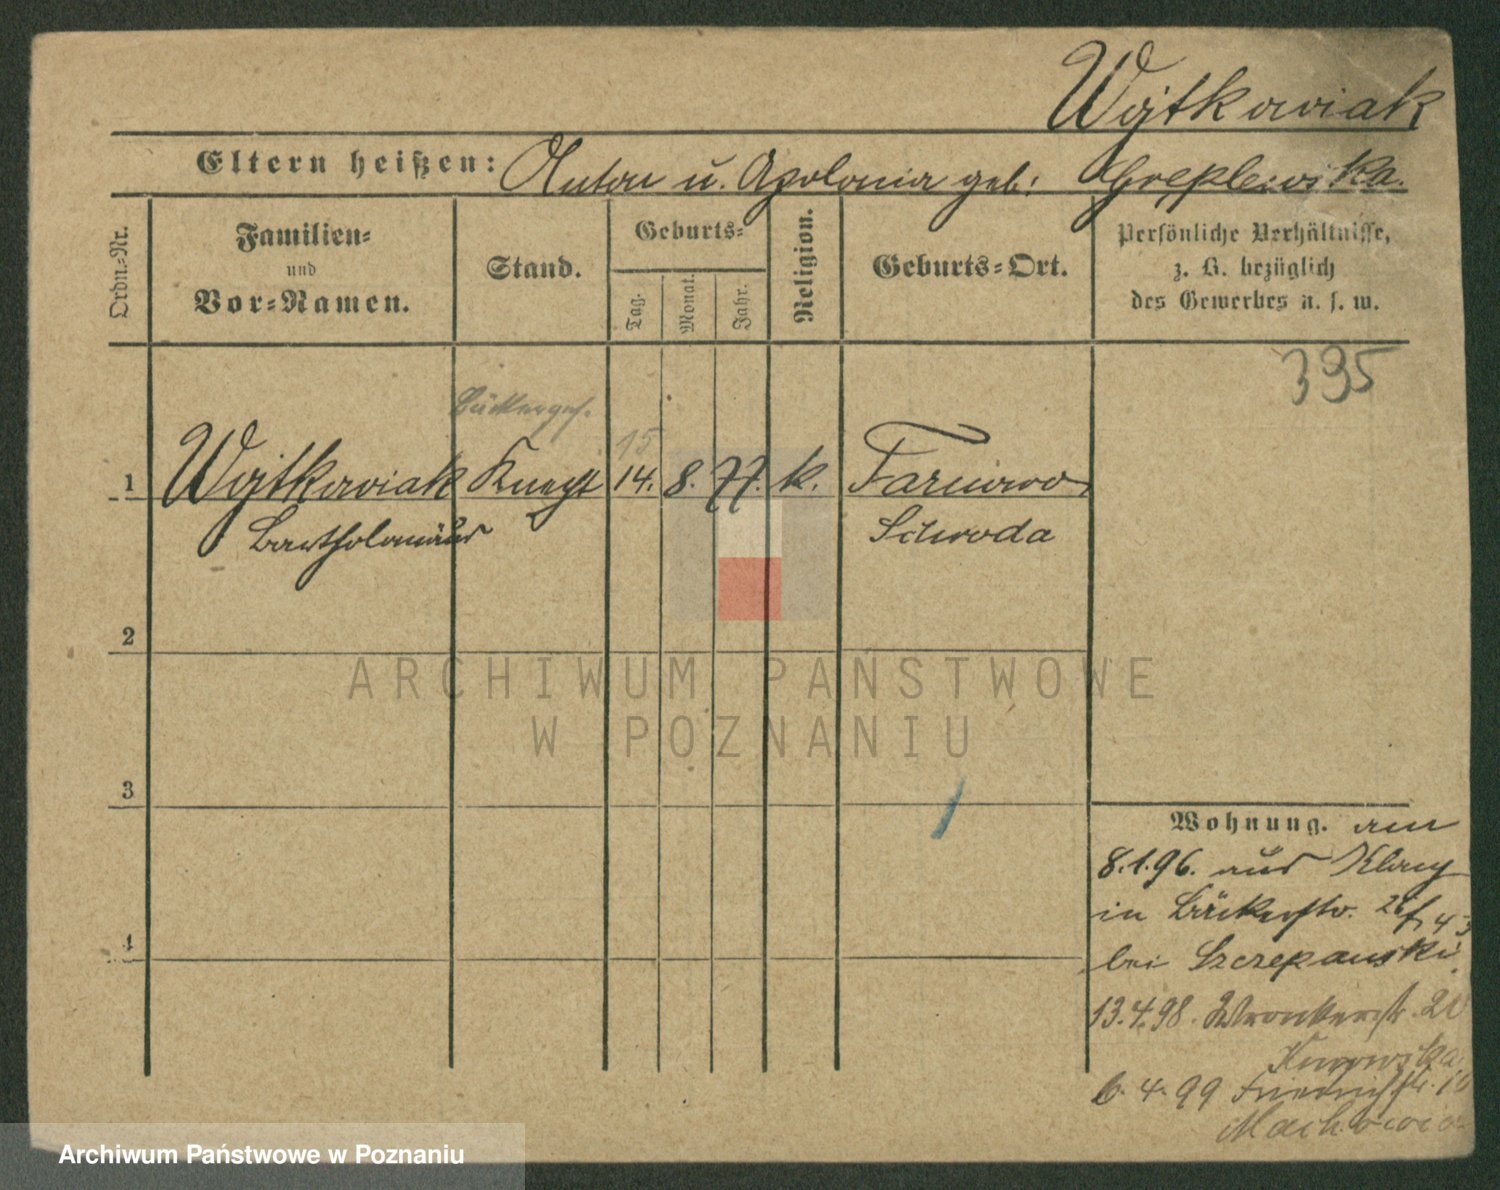 Wojtkowiak
Eltern heißen: Anton u. Apolonia geb:
Ordn.-Nr.
Familien-
und
Vor-Namen.
Stand.
Geburts-
Tag.
Monat.
Jahr.
Religion.
Geburts-Ort.
Persönliche Verhältnisse,
z. B. bezüglich
des Gewerbes u. s. w.
395
Bäckerges.
15
1 Wojtkowiak Knecht 14. 8. 77. k. Tarnowo
Bartholomäus Schroda
2
3
4
Wohnung. am
8.1.96. aus
in Bäckerstr.
bei Szczepanski
13.4.98. Wronkerstr.
6. 4. 99 Friedrichstr.
ARCHIWUM PAŃSTWOWE
W POZNANIU
Archiwum Państwowe w Poznaniu